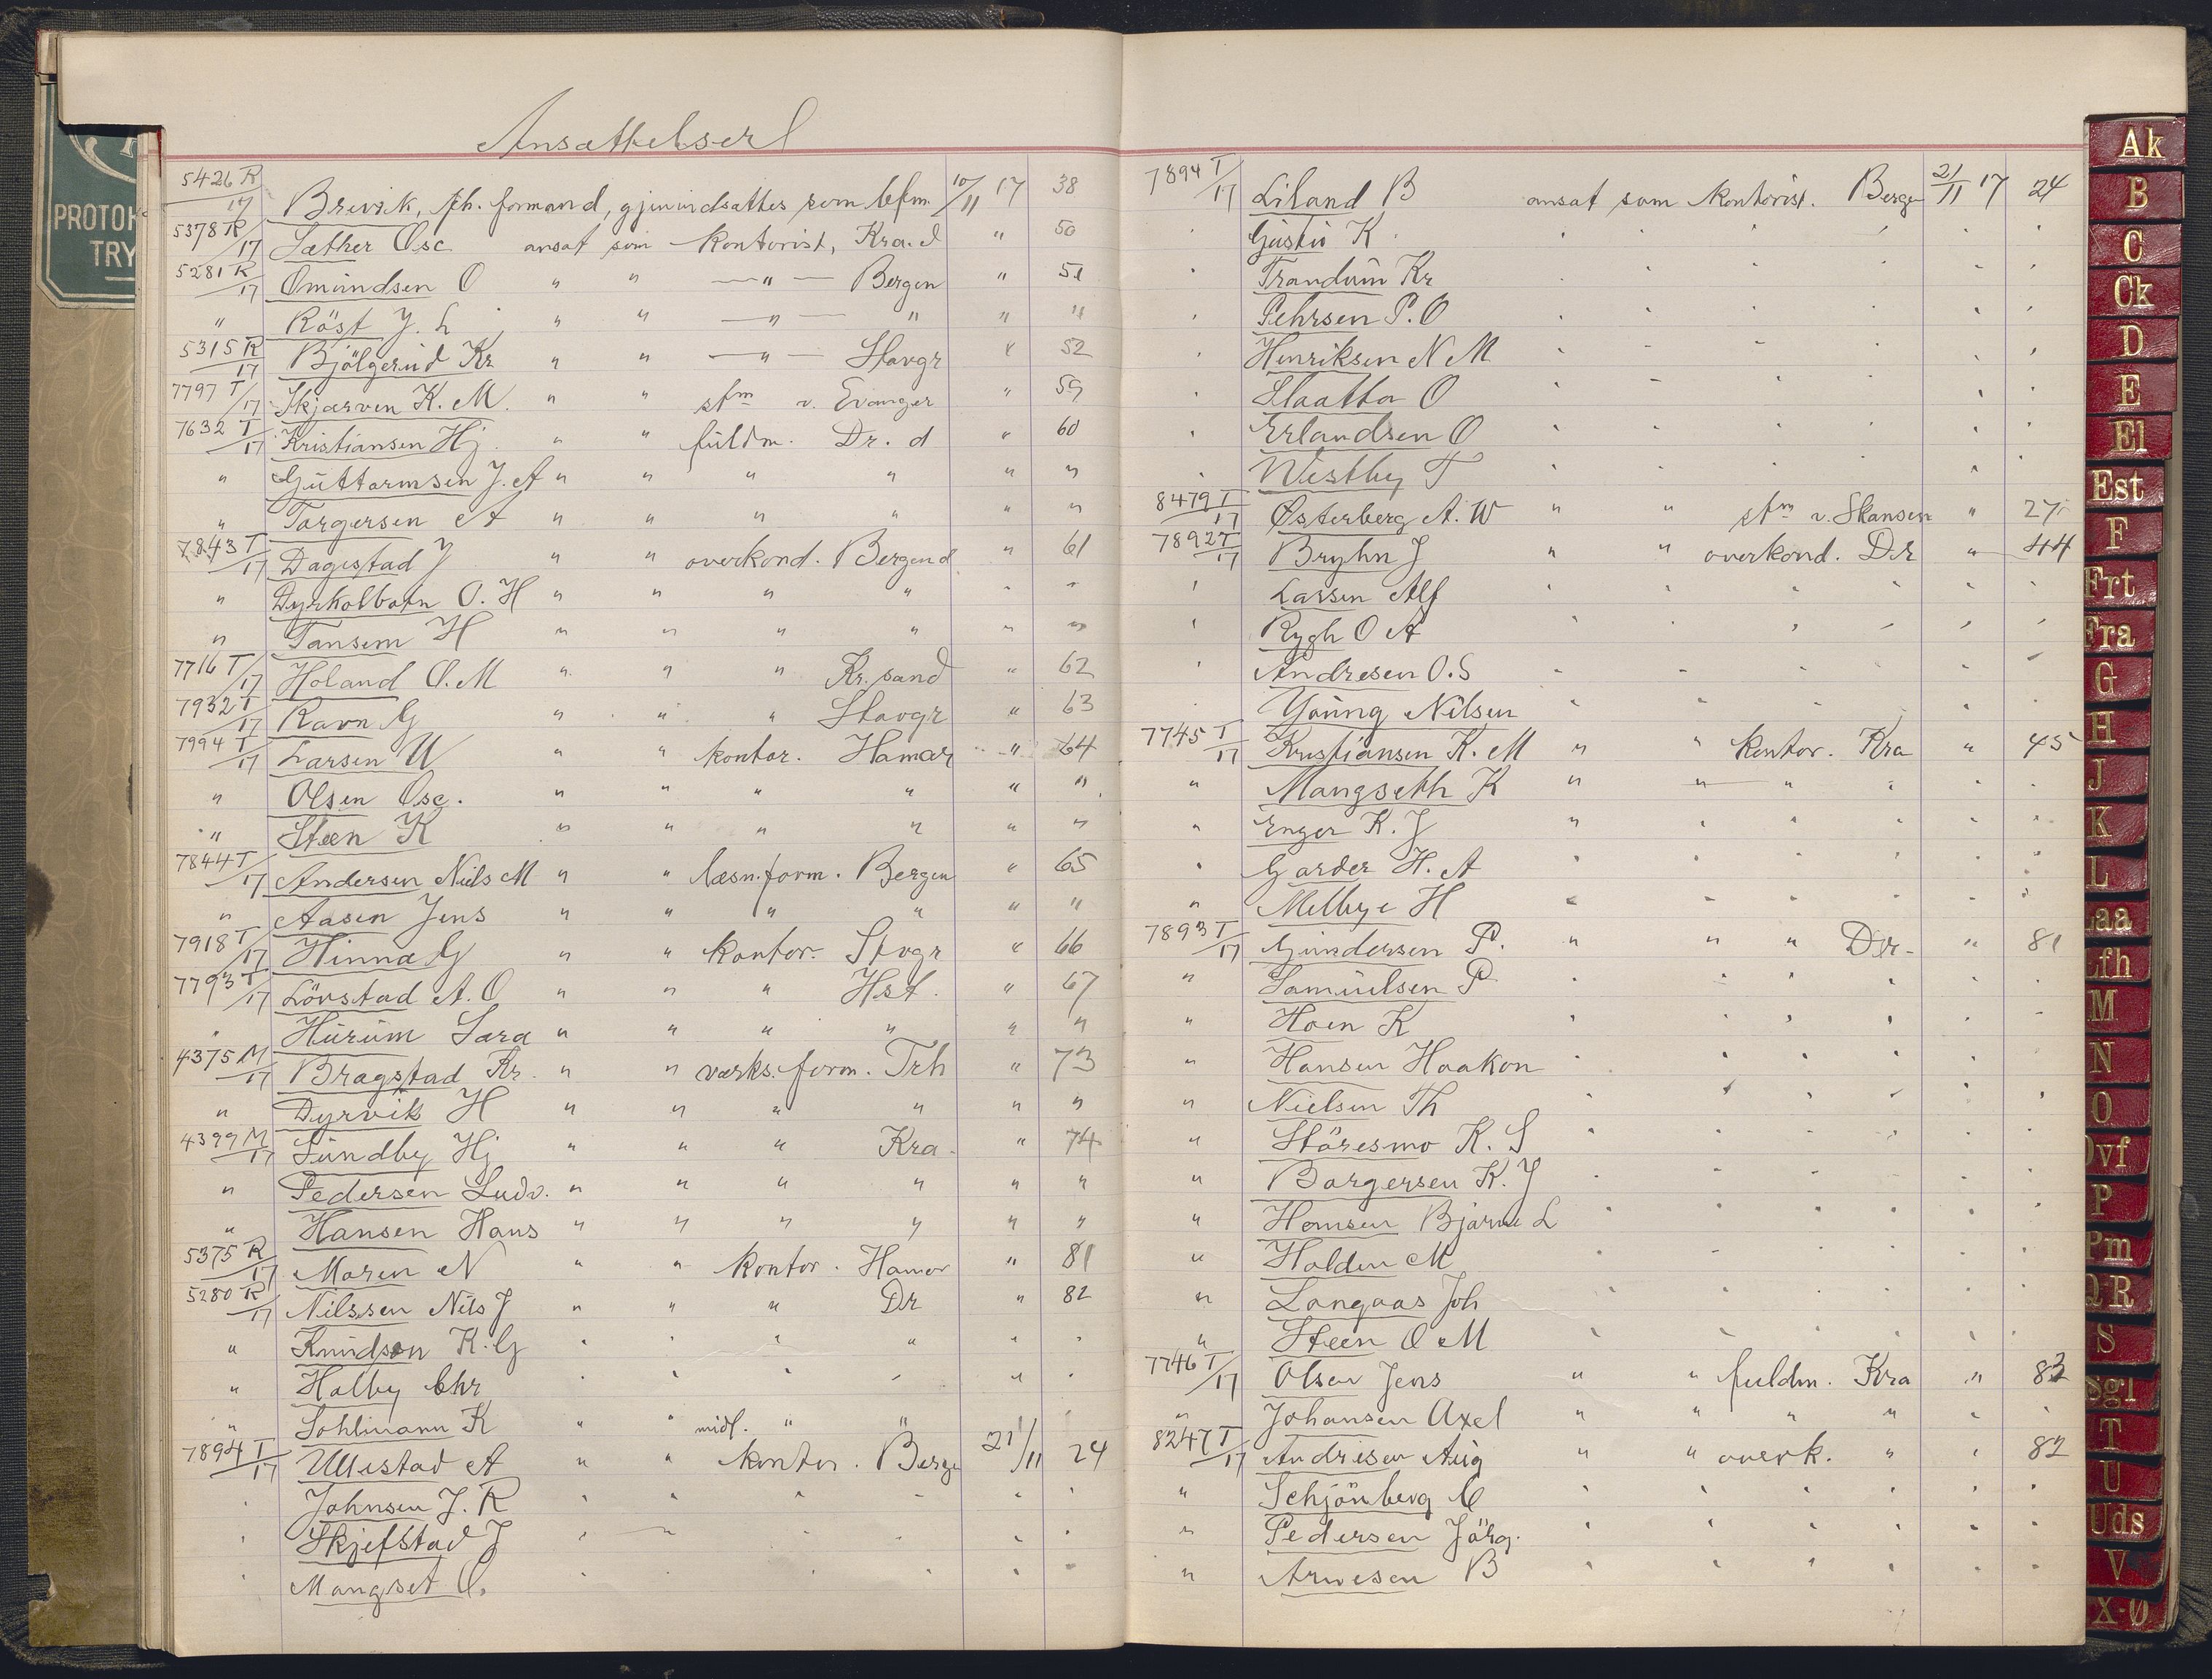 Ansættelser
5426 R/17 Brevik, fh. formand, gjenindsættes som bfm. 10/11 17 38
5378 R/17 Sæther Osc. ansat som kontorist, Kra. d " 50
5281 R/17 Omundsen O " " —"— Bergen " 51
" Röst J. L " " —"— " " "
5315 R/17 Bjölgerud Kr " " —"— Stavgr " 52
7797 T/17 Skjærven K. M. " " stm v. Evanger " 59
7632 T/17 Kristiansen Hj. " " fuldm. Dr. d " 60
" Guttormsen J. A " " " " " "
" Torgersen A " " " " " "
7843 T/17 Dagestad J " " overkond. Bergen d " 61
" Dyrkolbotn O. H " " " " " "
" Tansem H " " " " " "
7716 T/17 Holand O. M " " " Kr. sand " 62
7932 T/17 Ravn G " " " Stavgr " 63
7994 T/17 Larsen W " " kontor. Hamar " 64
" Olsen Osc. " " " " " "
" Steen K " " " " " "
7844 T/17 Andersen Niels M " " læsn.form. Bergen " 65
" Aasen Jens " " " " " "
7918 T/17 Hinna G " " kontor. Stvgr " 66
7793 T/17 Lövstad A. O " " " Hst. " 67
" Hurum Sara " " " " " "
4375 M/17 Bragstad Kr. " " værks. form. Trh " 73
" Dyrvik H " " " " " "
4399 M/17 Sundby Hj " " " Kra. " 74
" Pedersen Ludv. " " " " " "
" Hansen Hans " " " " " "
5375 R/17 Moren N " " kontor. Hamar " 81
5280 R/17 Nilssen Nils J " " " Dr " 82
" Knudsen K. G " " " " " "
" Holby Chr " " " " " "
" Sohlmann K " " midl. " " "
7894 T/17 Ullestad A " " kontor. Berge 21/11 24
" Johnsen J. R " " " " " "
" Skjefstad J " " " " " "
" Mangset O. " " " " " "
7894 T/17 Liland B ansat som kontorist. Berge 21/11 17 24
" Gustu K " " " " " "
" Trandum Kr " " " " " "
" Pehrsen P. O " " " " " "
" Henriksen N M " " " " " "
" Slaatta O " " " " " "
" Erlandsen O " " " " " "
" Westby T " " " " " "
8479 T/17 Østerberg A. W " " stm v. Skansen " 27
7892 T/17 Bryhn J " " overkond. Dr " 44
" Larsen Alf " " " " " "
" Rygh O A " " " " " "
" Andresen O. S " " " " " "
" Young Nilsen " " " " " "
7745 T/17 Kristiansen K. M " " kontor. Kra " 45
" Mangseth K " " " " " "
" Enger K. J " " " " " "
" Garder H. A " " " " " "
" Melbye H " " " " " "
7893 T/17 Gundersen P. " " " Dr. " 81
" Samuelsen P " " " " " "
" Hoen K " " " " " "
" Hansen Haakon " " " " " "
" Nielsen Th " " " " " "
" Störesmo K. S " " " " " "
" Borgersen K. J " " " " " "
" Homsen Bjarne L " " " " " "
" Holden M " " " " " "
" Langaas Joh " " " " " "
" Steen O M " " " " " "
7746 T/17 Olsen Jens " " fuldm. Kra " 83
" Johansen Axel " " " " " "
8247 T/17 Andresen Aug " " overk. " " 82
" Schjönberg C " " " " " "
" Pedersen Jörg. " " " " " "
" Arnesen B " " " " " "
PROTOK
TRY
Ak
B
C
Ck
D
E
El
Est
F
Frt
Fra
G
H
J
K
L
Laa
Lfh
M
N
O
Ovf
P
Pm
QR
S
Sgl
T
U
Uds
V
X-Ø